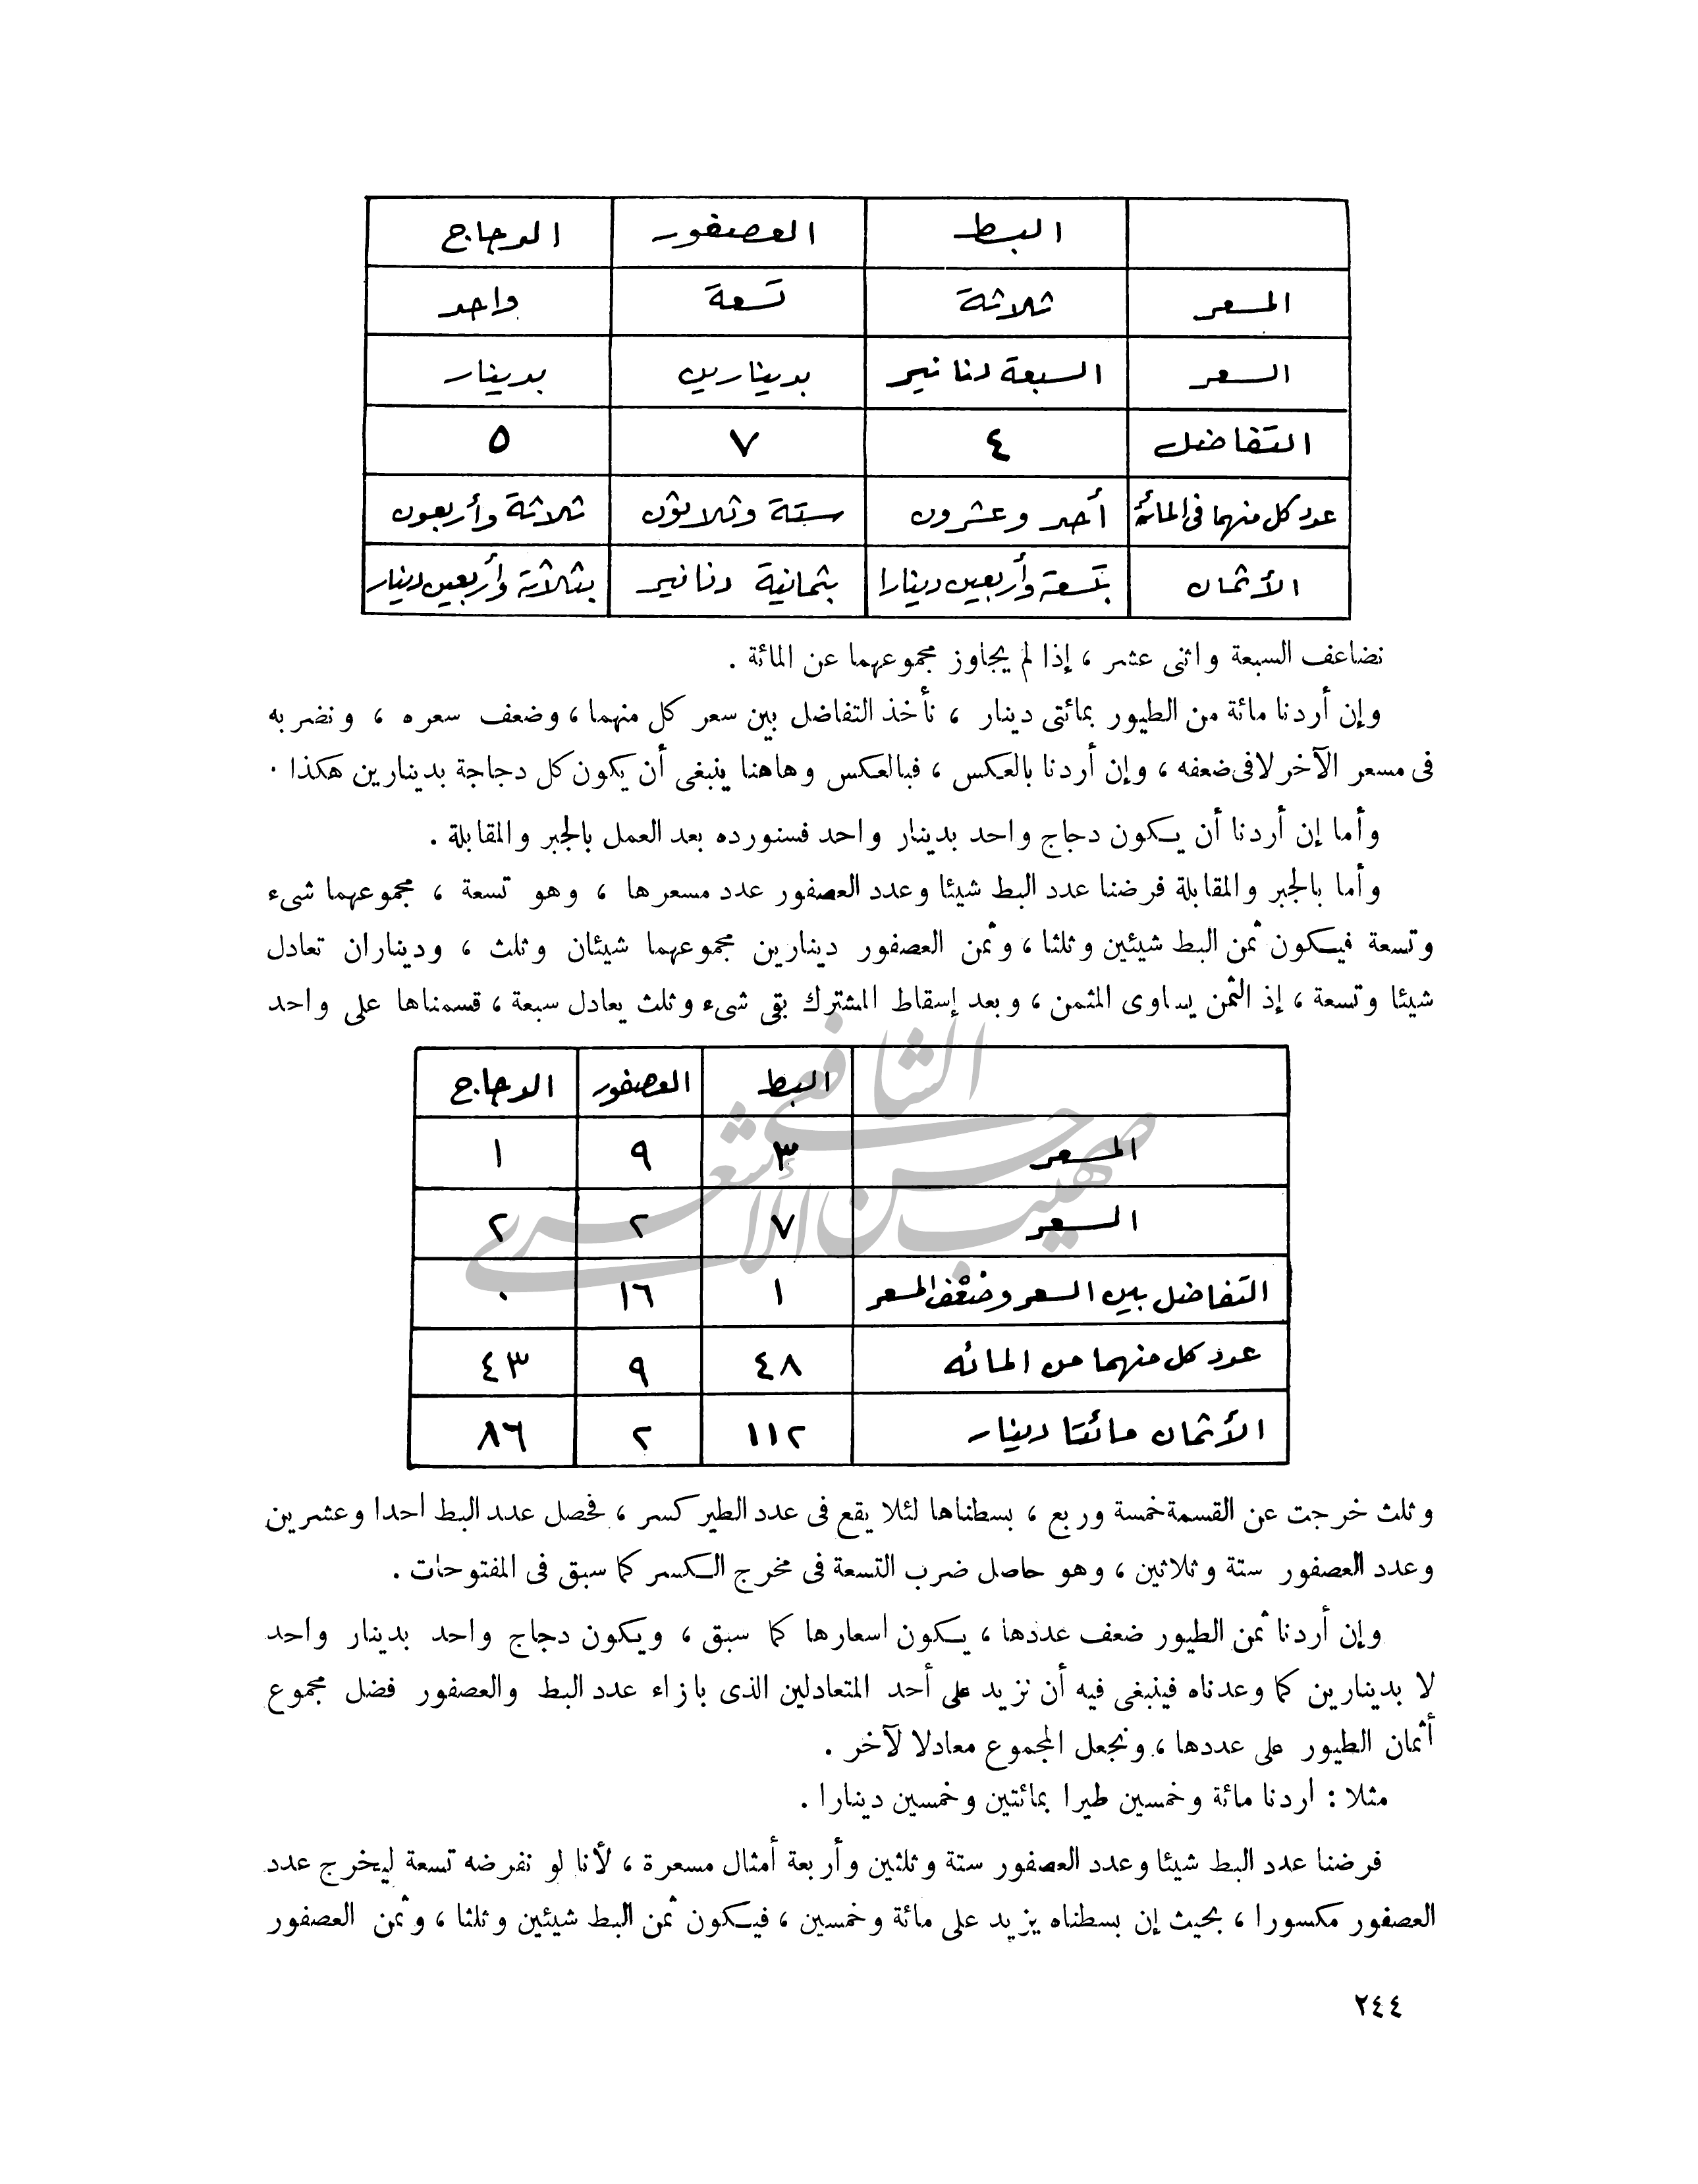 البط العصفور الدجاج
المسعر ثلاثة تسعة واحد
السعر السبعة دنانير بدينارين بدينار
التفاضل ٤ ٧ ٥
عدد كل منهما فى المائة أحد وعشرون ستة وثلاثون ثلاثة وأربعون
الأثمان بتسعة وأربعين دينارا بثمانية دنانير بثلاثة وأربعين دينار
نضاعف السبعة واثنى عشر ، إذا لم يجاوز مجموعهما عن المائة .
وإن أردنا مائة من الطيور بمائتى دينار ، نأخذ التفاضل بين سعر كل منهما ، وضعف سعره ، ونضربه
فى مسعر الآخر لا فى ضعفه ، وإن أردنا بالعكس ، فبالعكس وهاهنا ينبغى أن يكون كل دجاجة بدينارين هكذا .
وأما إن أردنا أن يكون دجاج واحد بدينار واحد فسنورده بعد العمل بالجبر والمقابلة .
وأما بالجبر والمقابلة فرضنا عدد البط شيئا وعدد العصفور عدد مسعرها ، وهو تسعة ، مجموعهما شىء
وتسعة فيكون ثمن البط شيئين وثلثا ، وثمن العصفور دينارين مجموعهما شيئان وثلث ، وديناران تعادل
شيئا وتسعة ، إذ الثمن يساوى المثمن ، وبعد إسقاط المشترك بقى شىء وثلث يعادل سبعة ، قسمناها على واحد
البط العصفور الدجاج
المسعر ٣ ٩ ١
السعر ٧ ٢ ٢
التفاضل بين السعر وضعف المسعر ١ ١٦ ٠
عدد كل منهما من المائه ٤٨ ٩ ٤٣
الأثمان مائتا دينار ١١٢ ٢ ٨٦
وثلث خرجت عن القسمة خمسة وربع ، بسطناها لئلا يقع فى عدد الطير كسر ، فحصل عدد البط احدا وعشرين
وعدد العصفور ستة وثلاثين ، وهو حاصل ضرب التسعة فى مخرج الكسر كما سبق فى المفتوحات .
وإن أردنا ثمن الطيور ضعف عددها ، يكون اسعارها كما سبق ، ويكون دجاج واحد بدينار واحد
لا بدينارين كما وعدناه فينبغى فيه أن نزيد على أحد المتعادلين الذى بازاء عدد البط والعصفور فضل مجموع
أثمان الطيور على عددها ، ونجعل المجموع معادلا لآخر .
مثلا : اردنا مائة وخمسين طيرا بمائتين وخمسين دينارا .
فرضنا عدد البط شيئا وعدد العصفور ستة وثلثين وأربعة أمثال مسعرة ، لأنا لو نفرضه تسعة ليخرج عدد
العصفور مكسورا ، بحيث إن بسطناه يزيد على مائة وخمسين ، فيكون ثمن البط شيئين وثلثا ، وثمن العصفور
٢٤٤
صهيب حسن الشافعي الأشعري